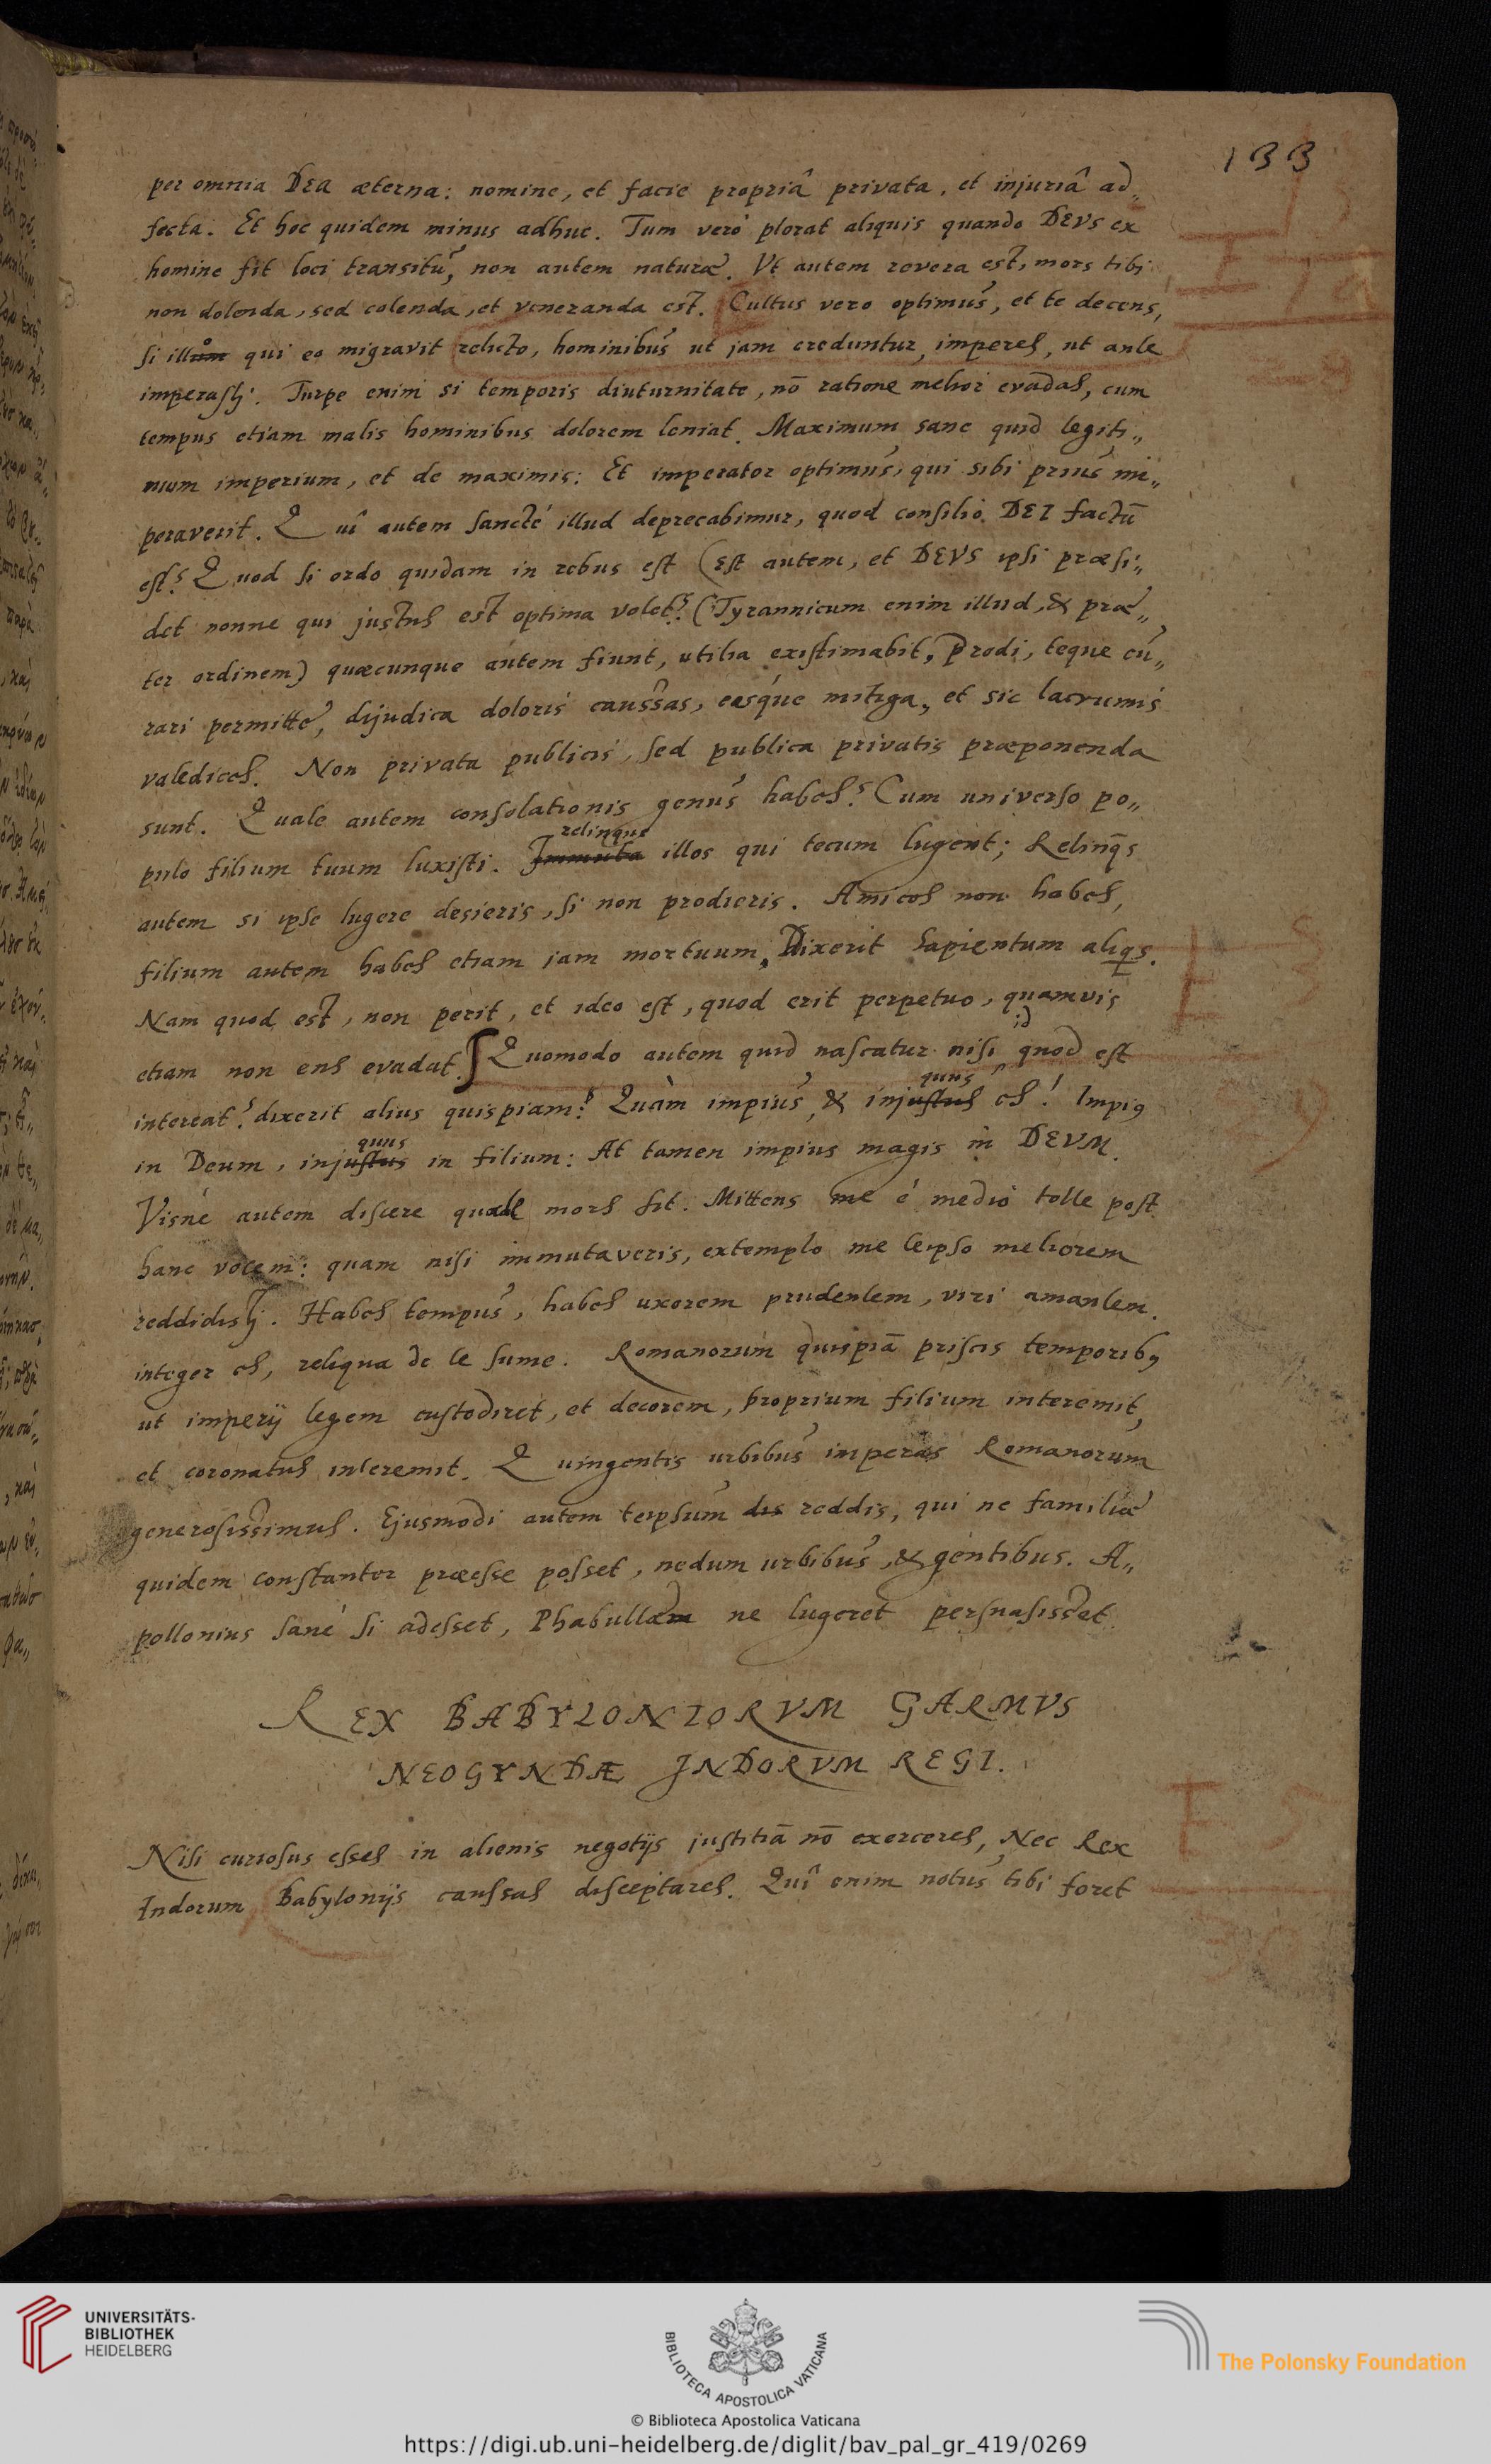 133
per omnia DEA æterna: nomine, et facie propriâ privata, et injuriâ ad„
fecta. Et hoc quidem minus adhuc. Tum verò plorat aliquis quando DEVS ex
homine fit loci transitu, non autem naturæ. Vt autem revera est, mors tibi
non dolenda, sed colenda, et veneranda est. Cultus vero optimus, et te decens,
si illo qui eo migravit relicto, hominibus ut jam creduntur, imperes, ut ante
imperasti. Turpe enim si temporis diuturnitate, nō ratione melior evadas, cum
tempus etiam malis hominibus dolorem leniat. Maximum sane quid legiti„
mum imperium, et de maximis: Et imperator optimus, qui sibi prius im„
peraverit. Quî autem sanctè illud deprecabimur, quod consilio DEI factū
est? Quod si ordo quidam in rebus est (Est autem, et DEVS ipsi præsi„
det nonne qui justus est optima volet? (Tyrannicum enim illud, & præ„
ter ordinem) quæcunque autem fiunt, utilia existimabit, Prodi, teque cu„
rari permitte, dijudica doloris caussas, easque mitiga, et sic lacrumis
valedices. Non privata publicis, sed publica privatis præponenda
sunt. Quale autem consolationis genus habes? Cum universo po„
relinque
pulo filium tuum luxisti. Immuta illos qui tecum lugent; Relinqs
autem si ipse lugere desieris, si non prodieris. Amicos non habes,
filium autem habes etiam jam mortuum, Dixerit Sapientum aliqs.
Nam quod est, non perit, et ideo est, quod erit perpetuo, quamvis
id
etiam non ens evadat. Quomodo autem quid nascatur nisi quod est
quus
intereat? dixerit alius quispiam? Quàm impius, & injustus es! Impiꝰ
quus
in Deum, injustus in filium: At tamen impius magis in DEVM.
Visne autem discere quale mors sit. Mittens me è medio tolle post
hanc vocem: quam nisi immutaveris, extemplo me teipso meliorem
reddidisti. Habes tempus, habes uxorem prudentem, viri amantem.
integer es, reliqua de te sume. Romanorum quispiā priscis temporibꝰ
ut imperij legem custodiret, et decorem, proprium filium interemit,
et coronatus interemit. Quingentis urbibus imperas Romanorum
generosissimus. Ejusmodi autem teipsum dis reddis, qui ne familiæ
quidem constanter præesse posset, nedum urbibus, & gentibus. A„
pollonius sanè si adesset, Phabullam ne lugeret persuasisset.
REX BABYLONIORVM GARMVS
NEOGYNDÆ INDORVM REGI.
Nisi curiosus esses in alienis negotijs justitiā nō exerceres, Nec Rex
Indorum Babylonijs caussas disceptares. Quî enim notus tibi foret
UNIVERSITÄTS-
BIBLIOTHEK
HEIDELBERG
BIBLIOTECA APOSTOLICA VATICANA
The Polonsky Foundation
© Biblioteca Apostolica Vaticana
https://digi.ub.uni-heidelberg.de/diglit/bav_pal_gr_419/0269